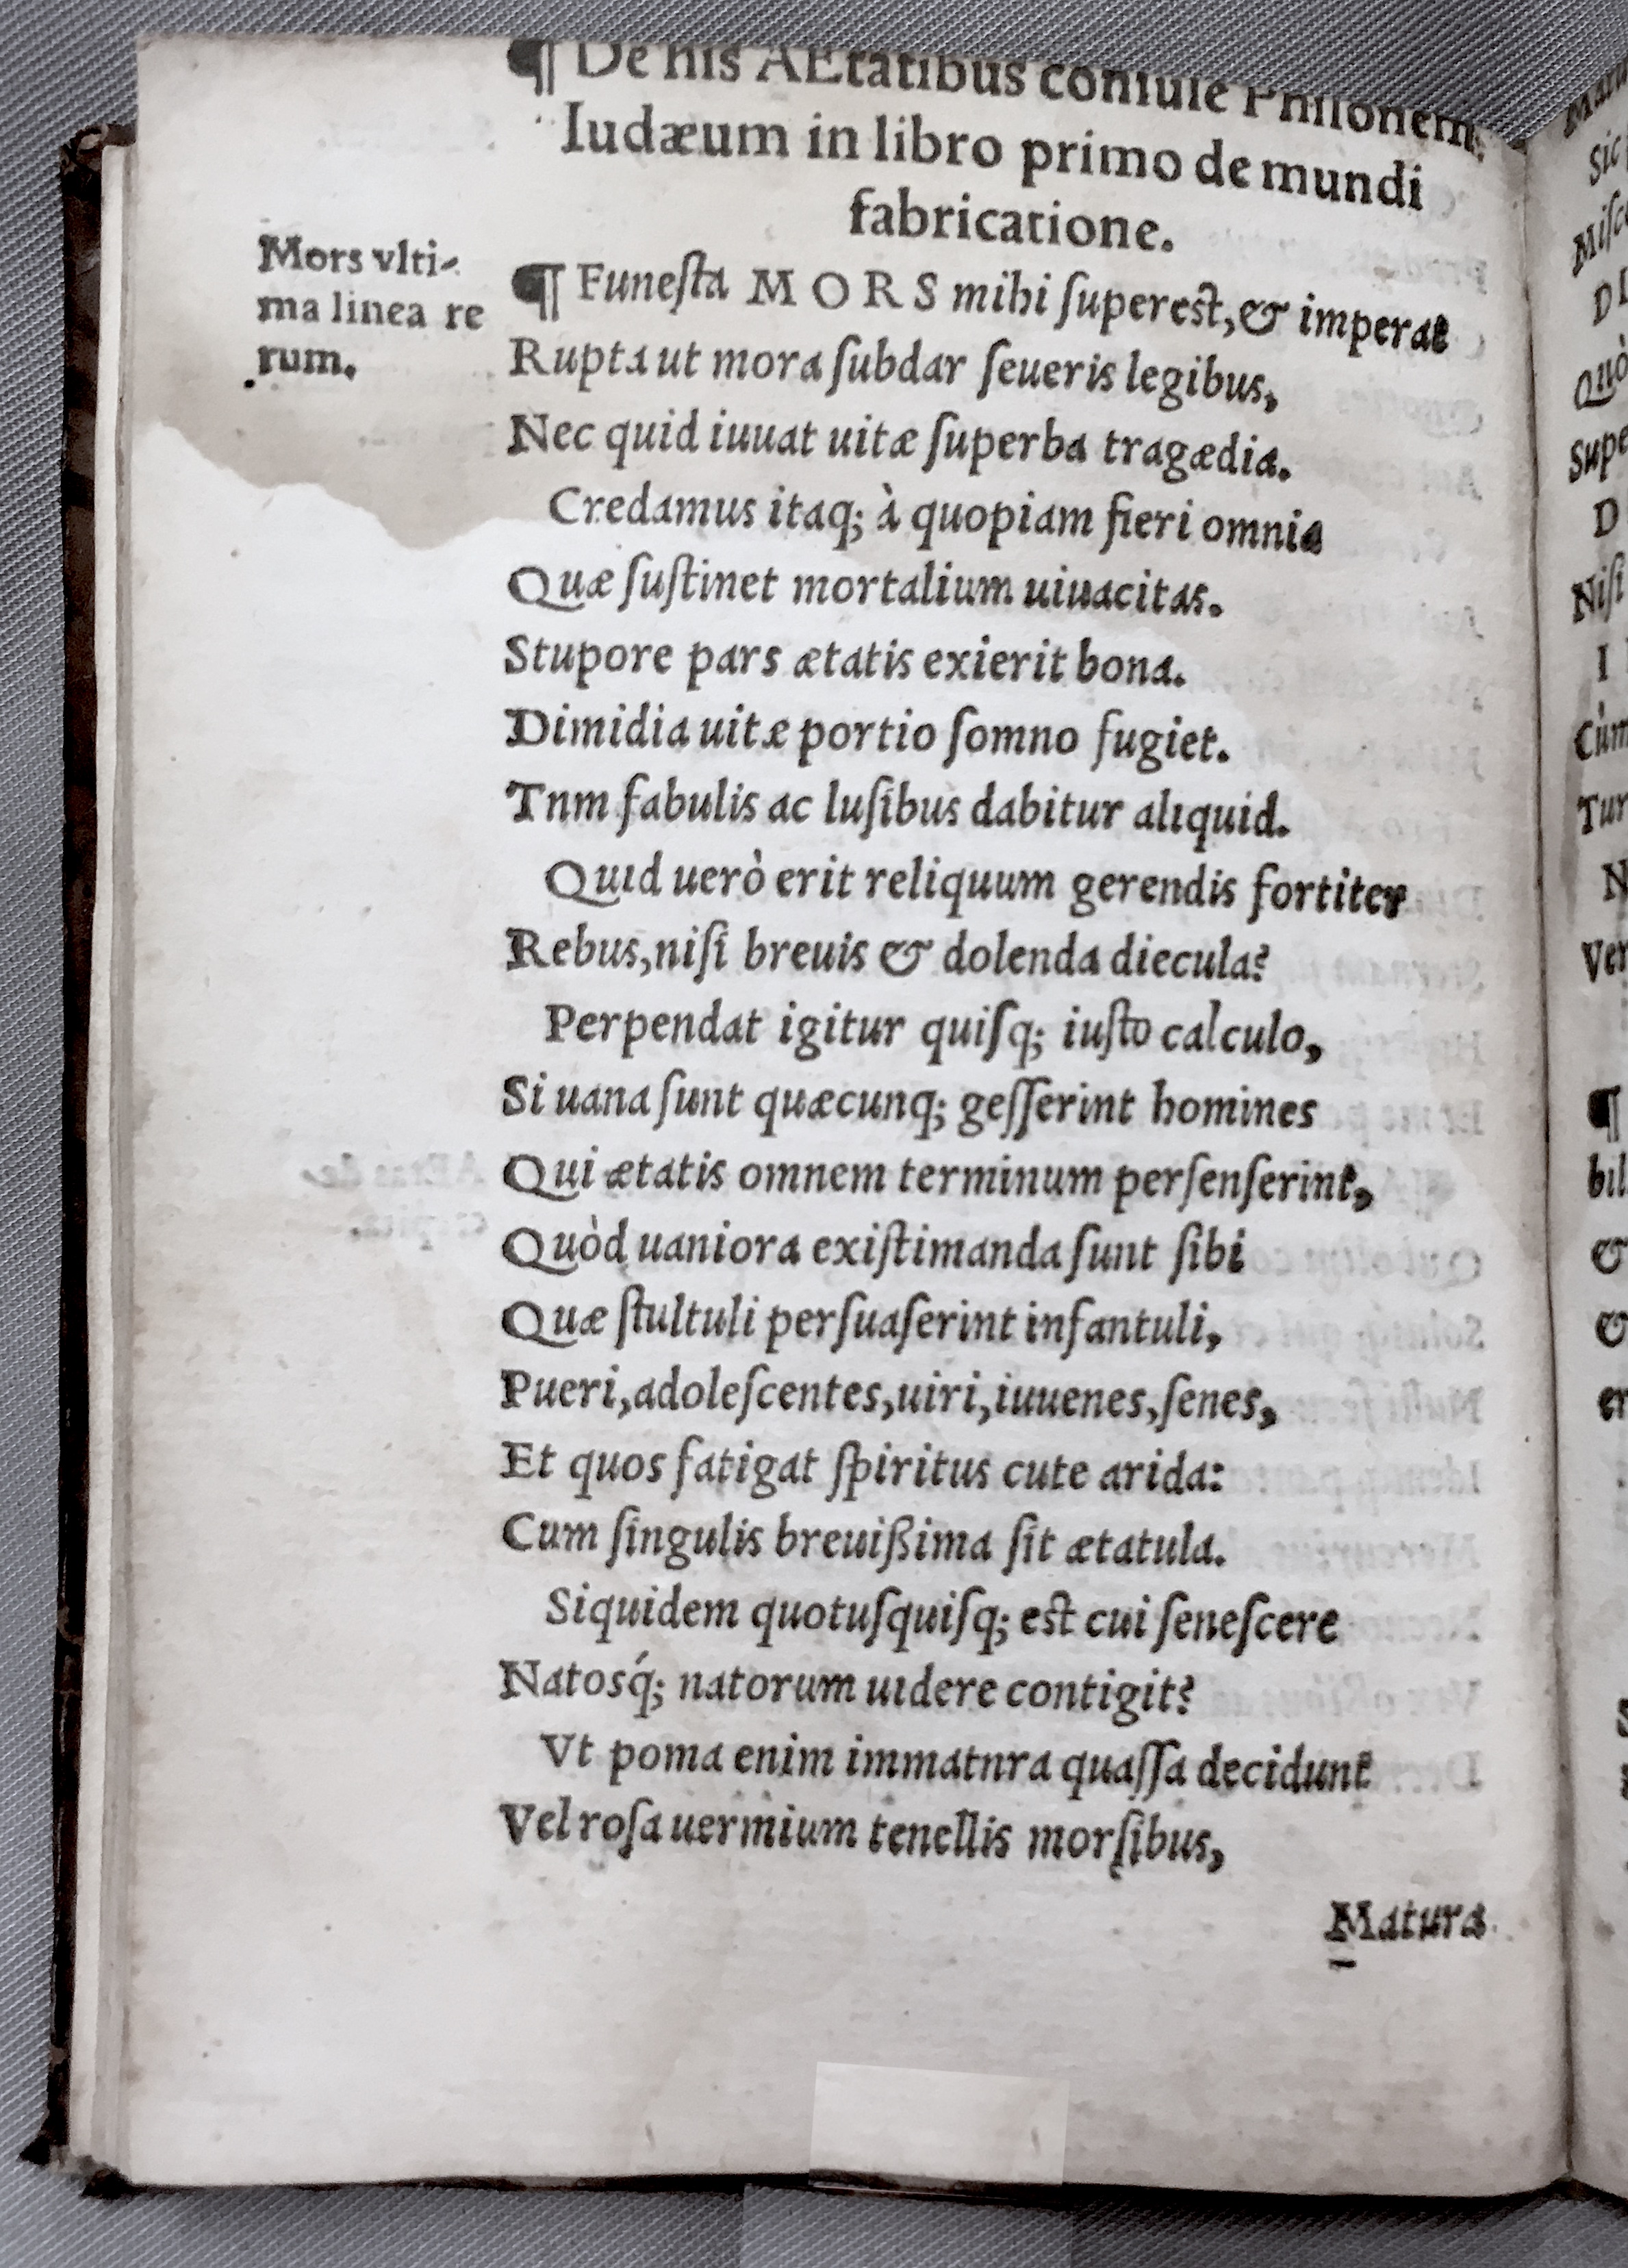 ¶ De his AEtatibus consule Philonem
Iudæum in libro primo de mundi
fabricatione.
Mors vlti-
ma linea re
rum.
¶ Funeſta MORS mihi ſupereſt, & imperat
Rupta ut mora ſubdar ſeueris legibus,
Nec quid iuuat uitæ ſuperba tragædia.
Credamus itaq; à quopiam fieri omnia
Quæ ſuſtinet mortalium uiuacitas.
Stupore pars ætatis exierit bona.
Dimidia uitæ portio ſomno fugiet.
Tnm fabulis ac luſibus dabitur aliquid.
Quid uerò erit reliquum gerendis fortiter
Rebus, niſi breuis & dolenda diecula?
Perpendat igitur quiſq; iuſto calculo,
Si uana ſunt quæcunq; geſſerint homines
Qui ætatis omnem terminum perſenſerint,
Quòd uaniora exiſtimanda ſunt ſibi
Quæ ſtultuli perſuaſerint infantuli,
Pueri, adoleſcentes, uiri, iuuenes, ſenes,
Et quos fatigat ſpiritus cute arida:
Cum ſingulis breuißima ſit ætatula.
Siquidem quotuſquiſq; eſt cui ſeneſcere
Natosq́; natorum uidere contigit?
Vt poma enim immatnra quaſſa decidunt
Vel roſa uermium tenellis morſibus,
Matura